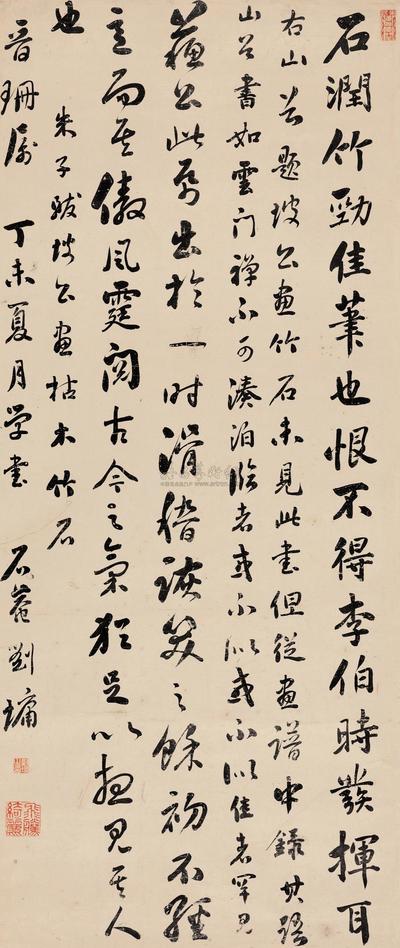 石潤竹勁佳筆也恨不得李伯時發揮耳
右山谷題坡公畫竹石未見此書但從畫譜中錄其語
山谷書如雲門禪不可湊泊臨者或不似或不似佳者罕見
蘇公此紙出於一时滑稽詼笑之餘初不經
意而其傲風霆閱古今之氣猶足以想見其人
也 朱子跋坡公畫枯木竹石
晉珊屬 丁未夏月學書 石菴劉墉